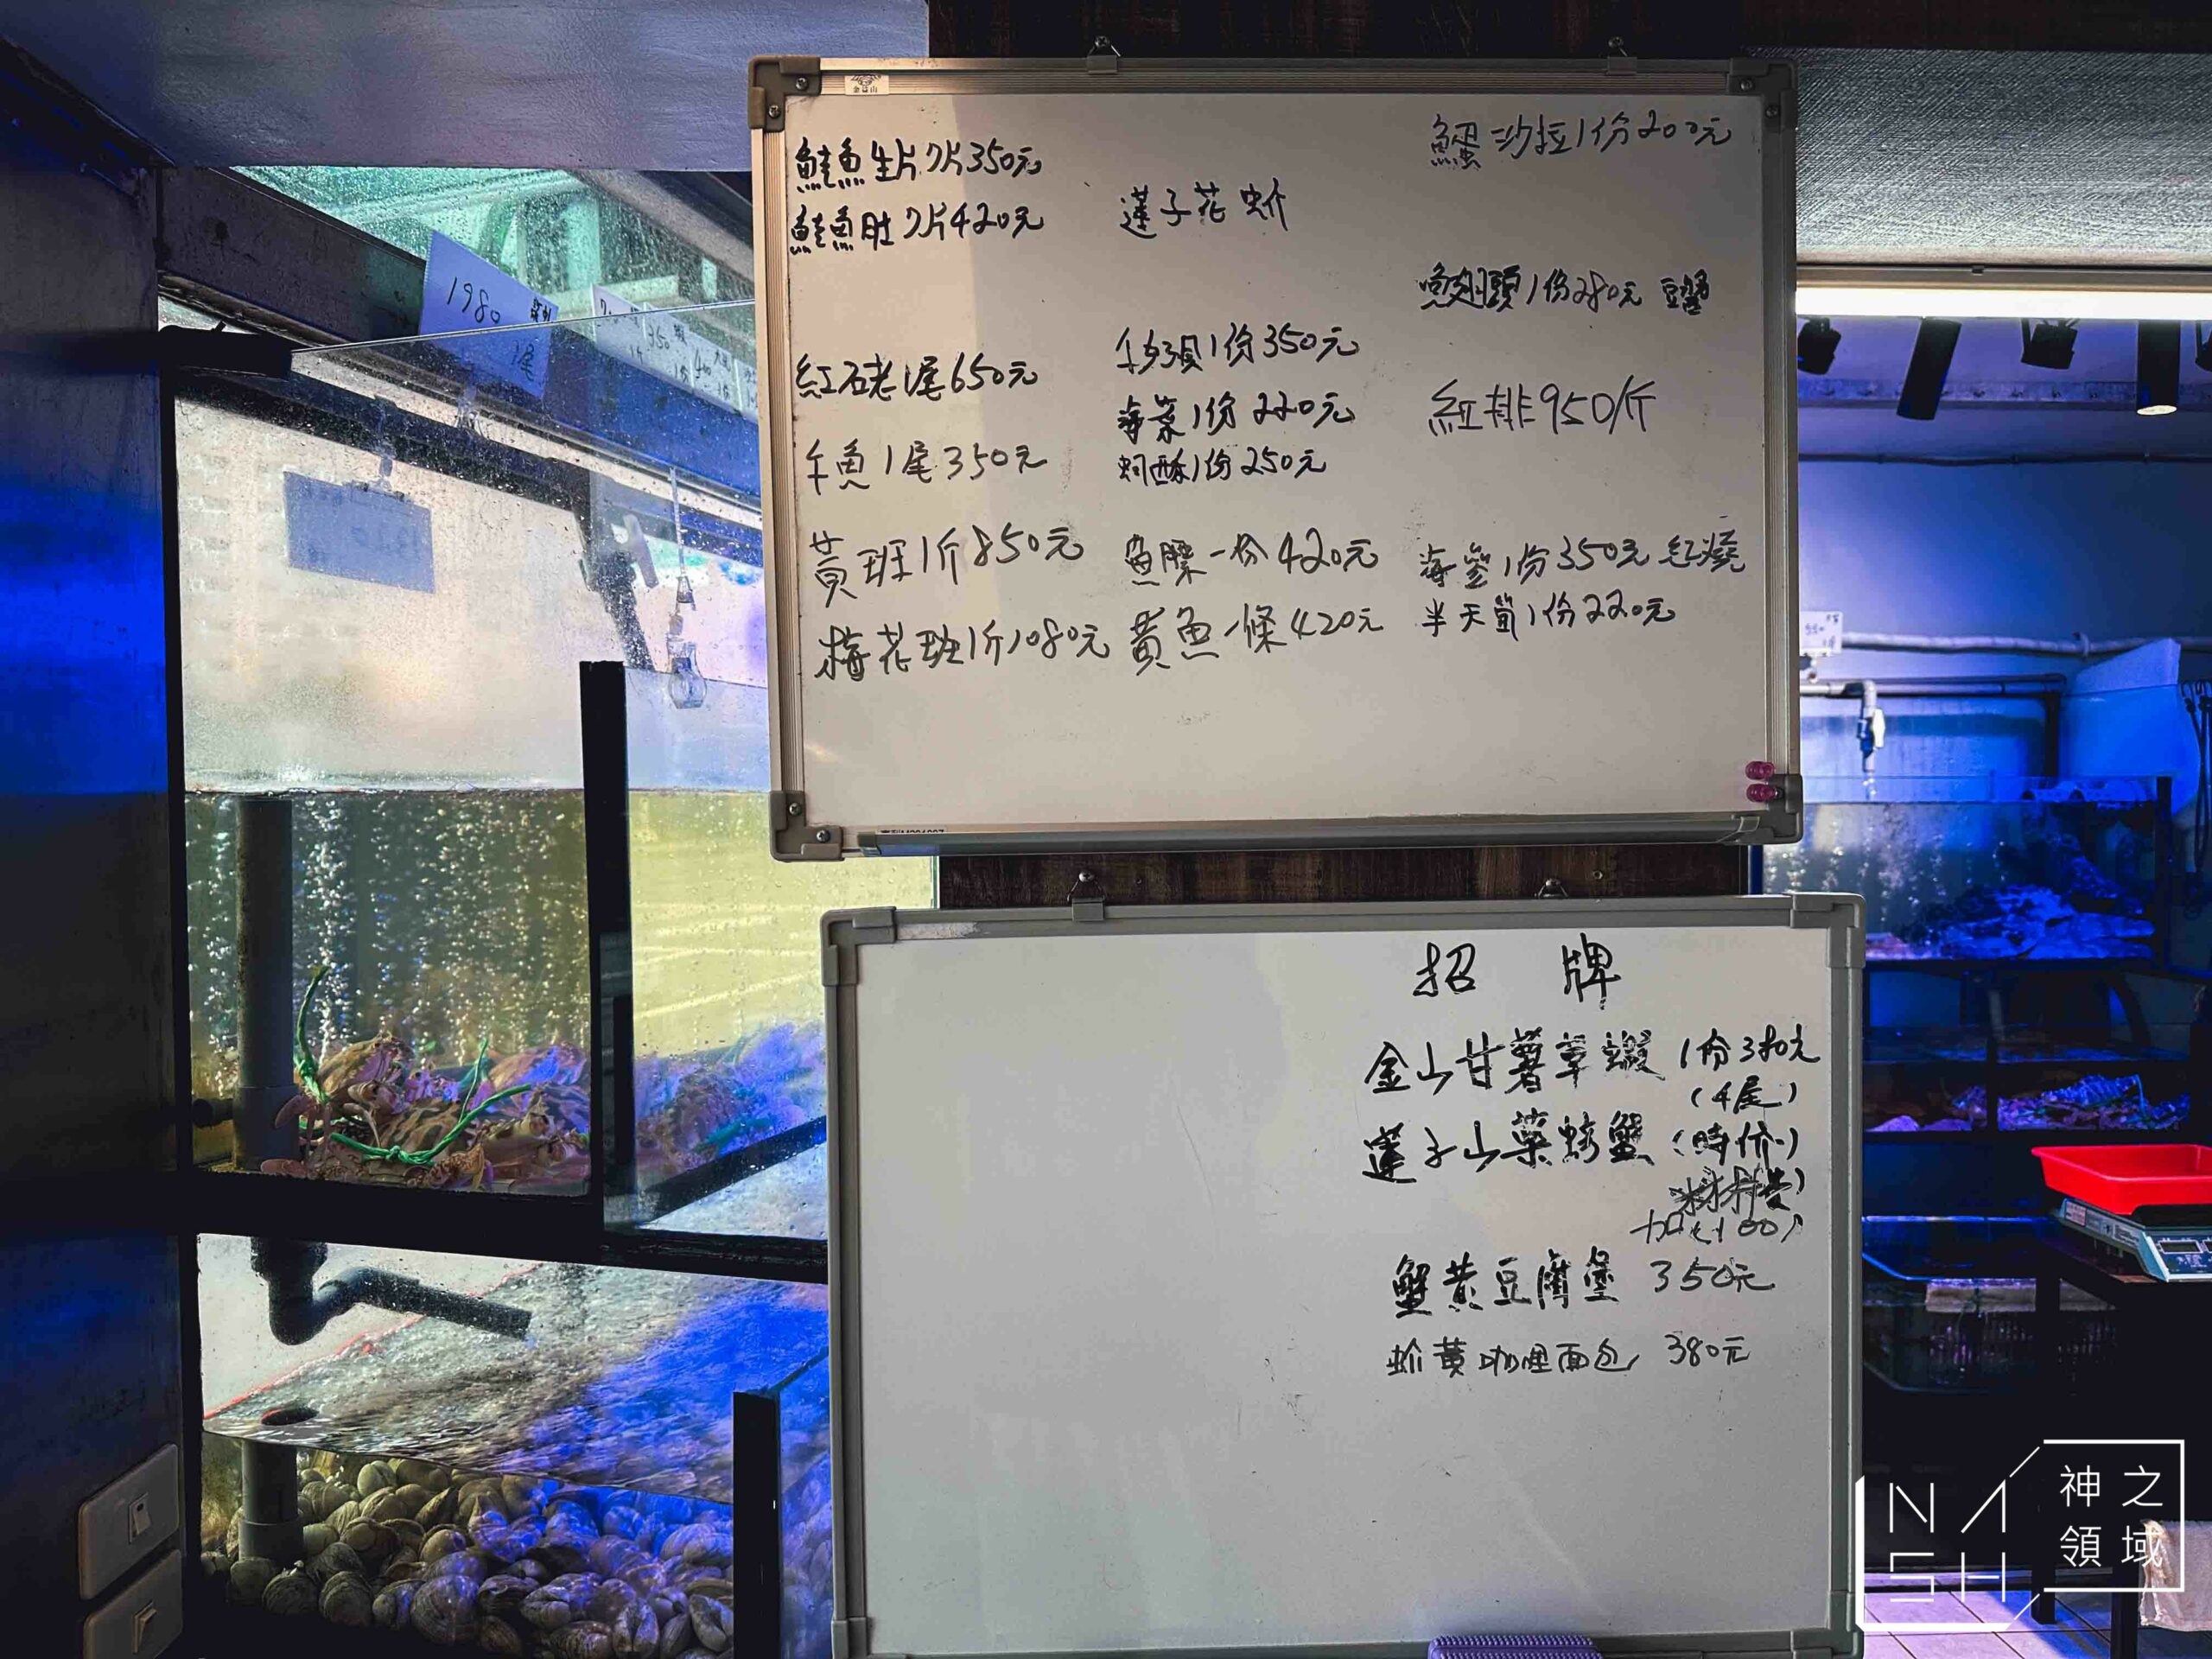 金益山
鮭魚生片7片350元
鮭魚肚7片420元
紅石老1尾650元
午魚1尾350元
黃班1斤850元
梅花班1斤1080元
蓮子花蚧
牛奶貝1份350元
海菜1份220元
蚵酥1份250元
魚膘一份420元
黃魚一條420元
沙拉1份200元
魚翅頭1份280元
紅排950/斤
海參1份350元 紅燒
半天筍1份220元
招牌
金山甘薯草蝦 1份380元
(4尾)
蓮子山藥螃蟹 (時价)
材料費)
蟹黃豆腐堡 350元
黃咖哩面包 380元
1980
1尾
350
NASH
神之
領域